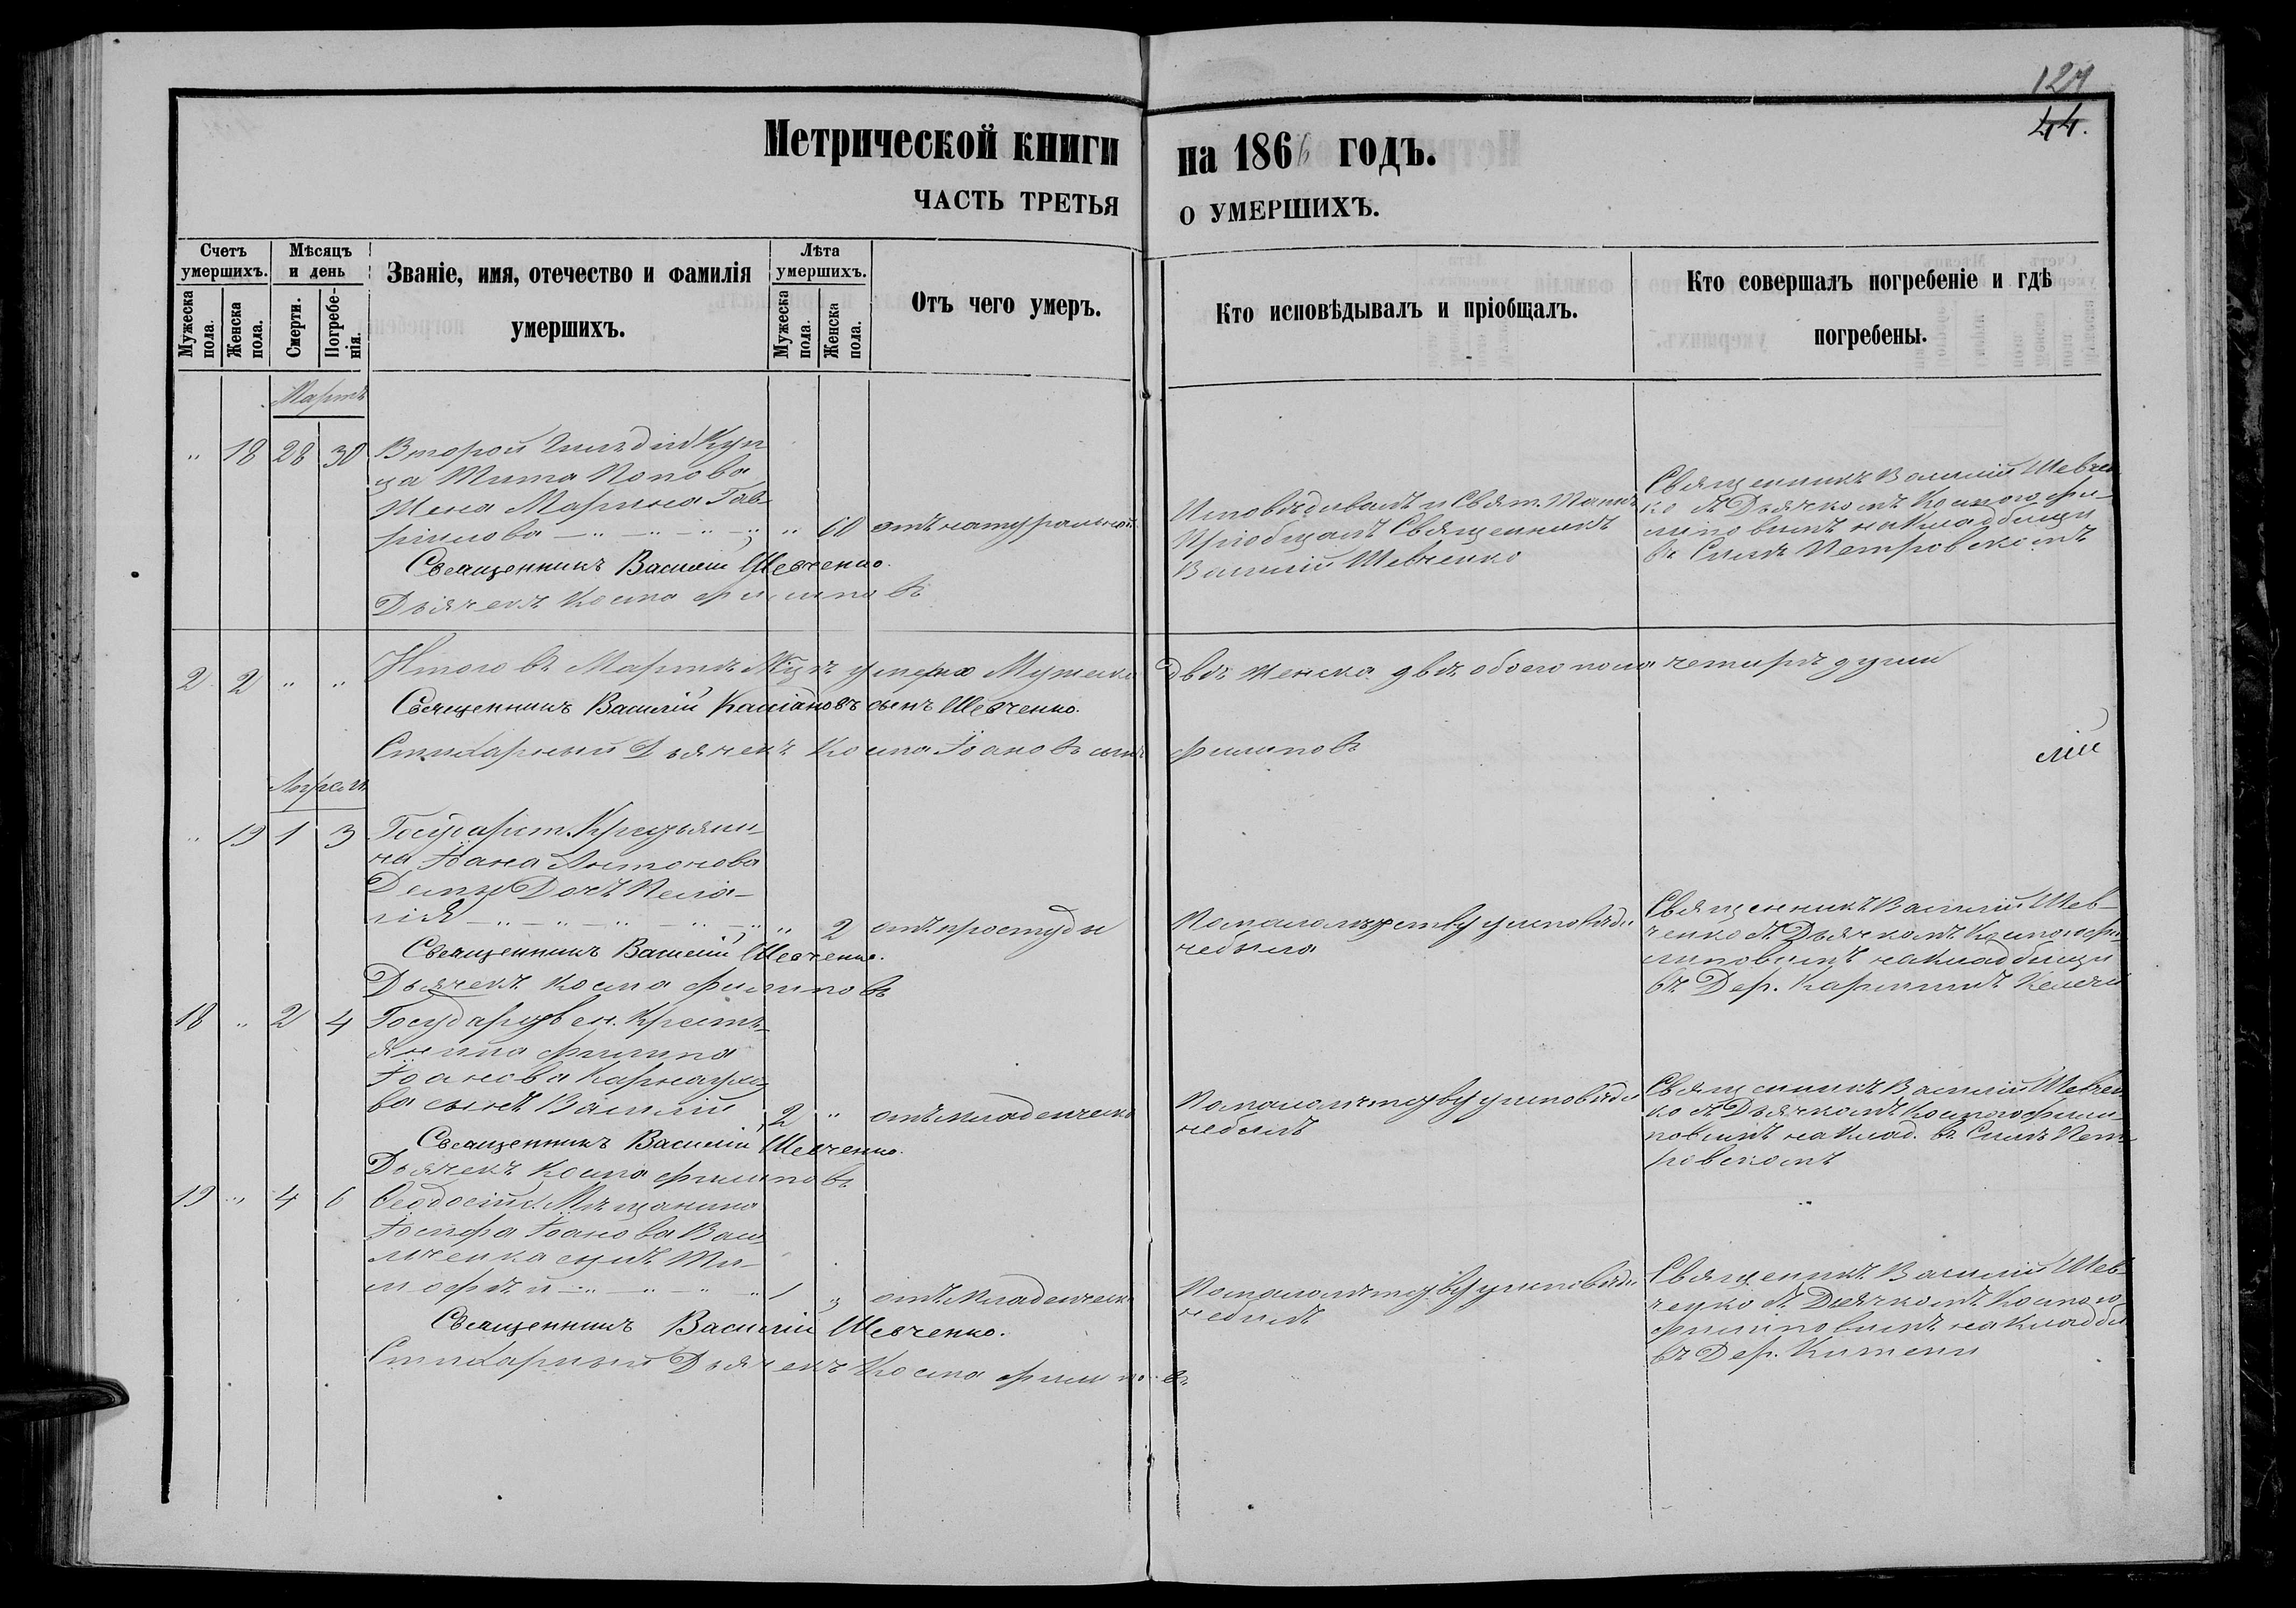 127
44.
Метрической книги на 1866 годъ.
ЧАСТЬ ТРЕТЬЯ О УМЕРШИХЪ.
Счетъ умершихъ.
Мужеска пола.
Женска пола.
Мѣсяцъ и день
Смерти.
Погребенія.
Званіе, имя, отечество и фамилія
умершихъ.
Лѣта умершихъ.
Мужеска пола.
Женска пола.
Отъ чего умеръ.
Кто исповѣдывалъ и пріобщалъ.
Кто совершалъ погребеніе и гдѣ
погребены.
Мартъ
" 18 28 30 Второй Гильдіи Куп
ца Тита Попова
Жена Марина Гав
рілова " 60 отъ натуральной
Священникъ Василій Шевченко.
Дьячекъ Косма Филиповъ
Исповѣдывалъ и Свят. Таинъ
Пріобщалъ Священникъ
Василій Шевченко
Священникъ Василій Шевчен
ко съ Дьячкомъ Космою Фи-
липовымъ на Кладбищи
въ Селѣ Петровскомъ
2 2 " " Итого въ Мартѣ М-цѣ умерло Мужеска двѣ Женска двѣ обоего пола четырѣ души
Священникъ Василій Касіановъ сынъ Шевченко.
Стихарный Дьячекъ Косма Іоановъ сынъ Филиповъ
лій
Апрель
" 19 1 3 Государст. Крестьяни-
на Іоана Антонова
Дочь Пела-
гія " 2 отъ простуды
Священникъ Василій Шевченко.
Дьячекъ Косма Филиповъ
По малолѣтству у исповѣди
небыла
Священникъ Василій Шев-
ченко съ Дьячкомъ Космою Фи-
липовымъ на Кладбищи
въ Дер.
18 " 2 4 Государствен. Кресть-
янина Филипа
Іоанова Карнаухо-
ва сынъ Василій 2 " отъ младенческ.
Священникъ Василій Шевченко.
Дьячекъ Косма Филиповъ
По малолѣтству у исповѣди
небылъ
Священникъ Василій Шевчен
ко съ Дьячкомъ Космою Фили-
повымъ на Клад. въ Селѣ Пет-
ровскомъ
19 " 4 6 Феодосійс. Мѣщанина
Іосифа Іоанова Васи
лченка сынъ Ти-
мофѣй 1 " отъ младенческ.
Священникъ Василій Шевченко.
Стихарный Дьячекъ Косма Филиповъ
По малолѣтству у исповѣди
небылъ
Священникъ Василій Шев-
ченко съ Дьячкомъ Космою
Филиповымъ на Кладби
въ Дер. Китени